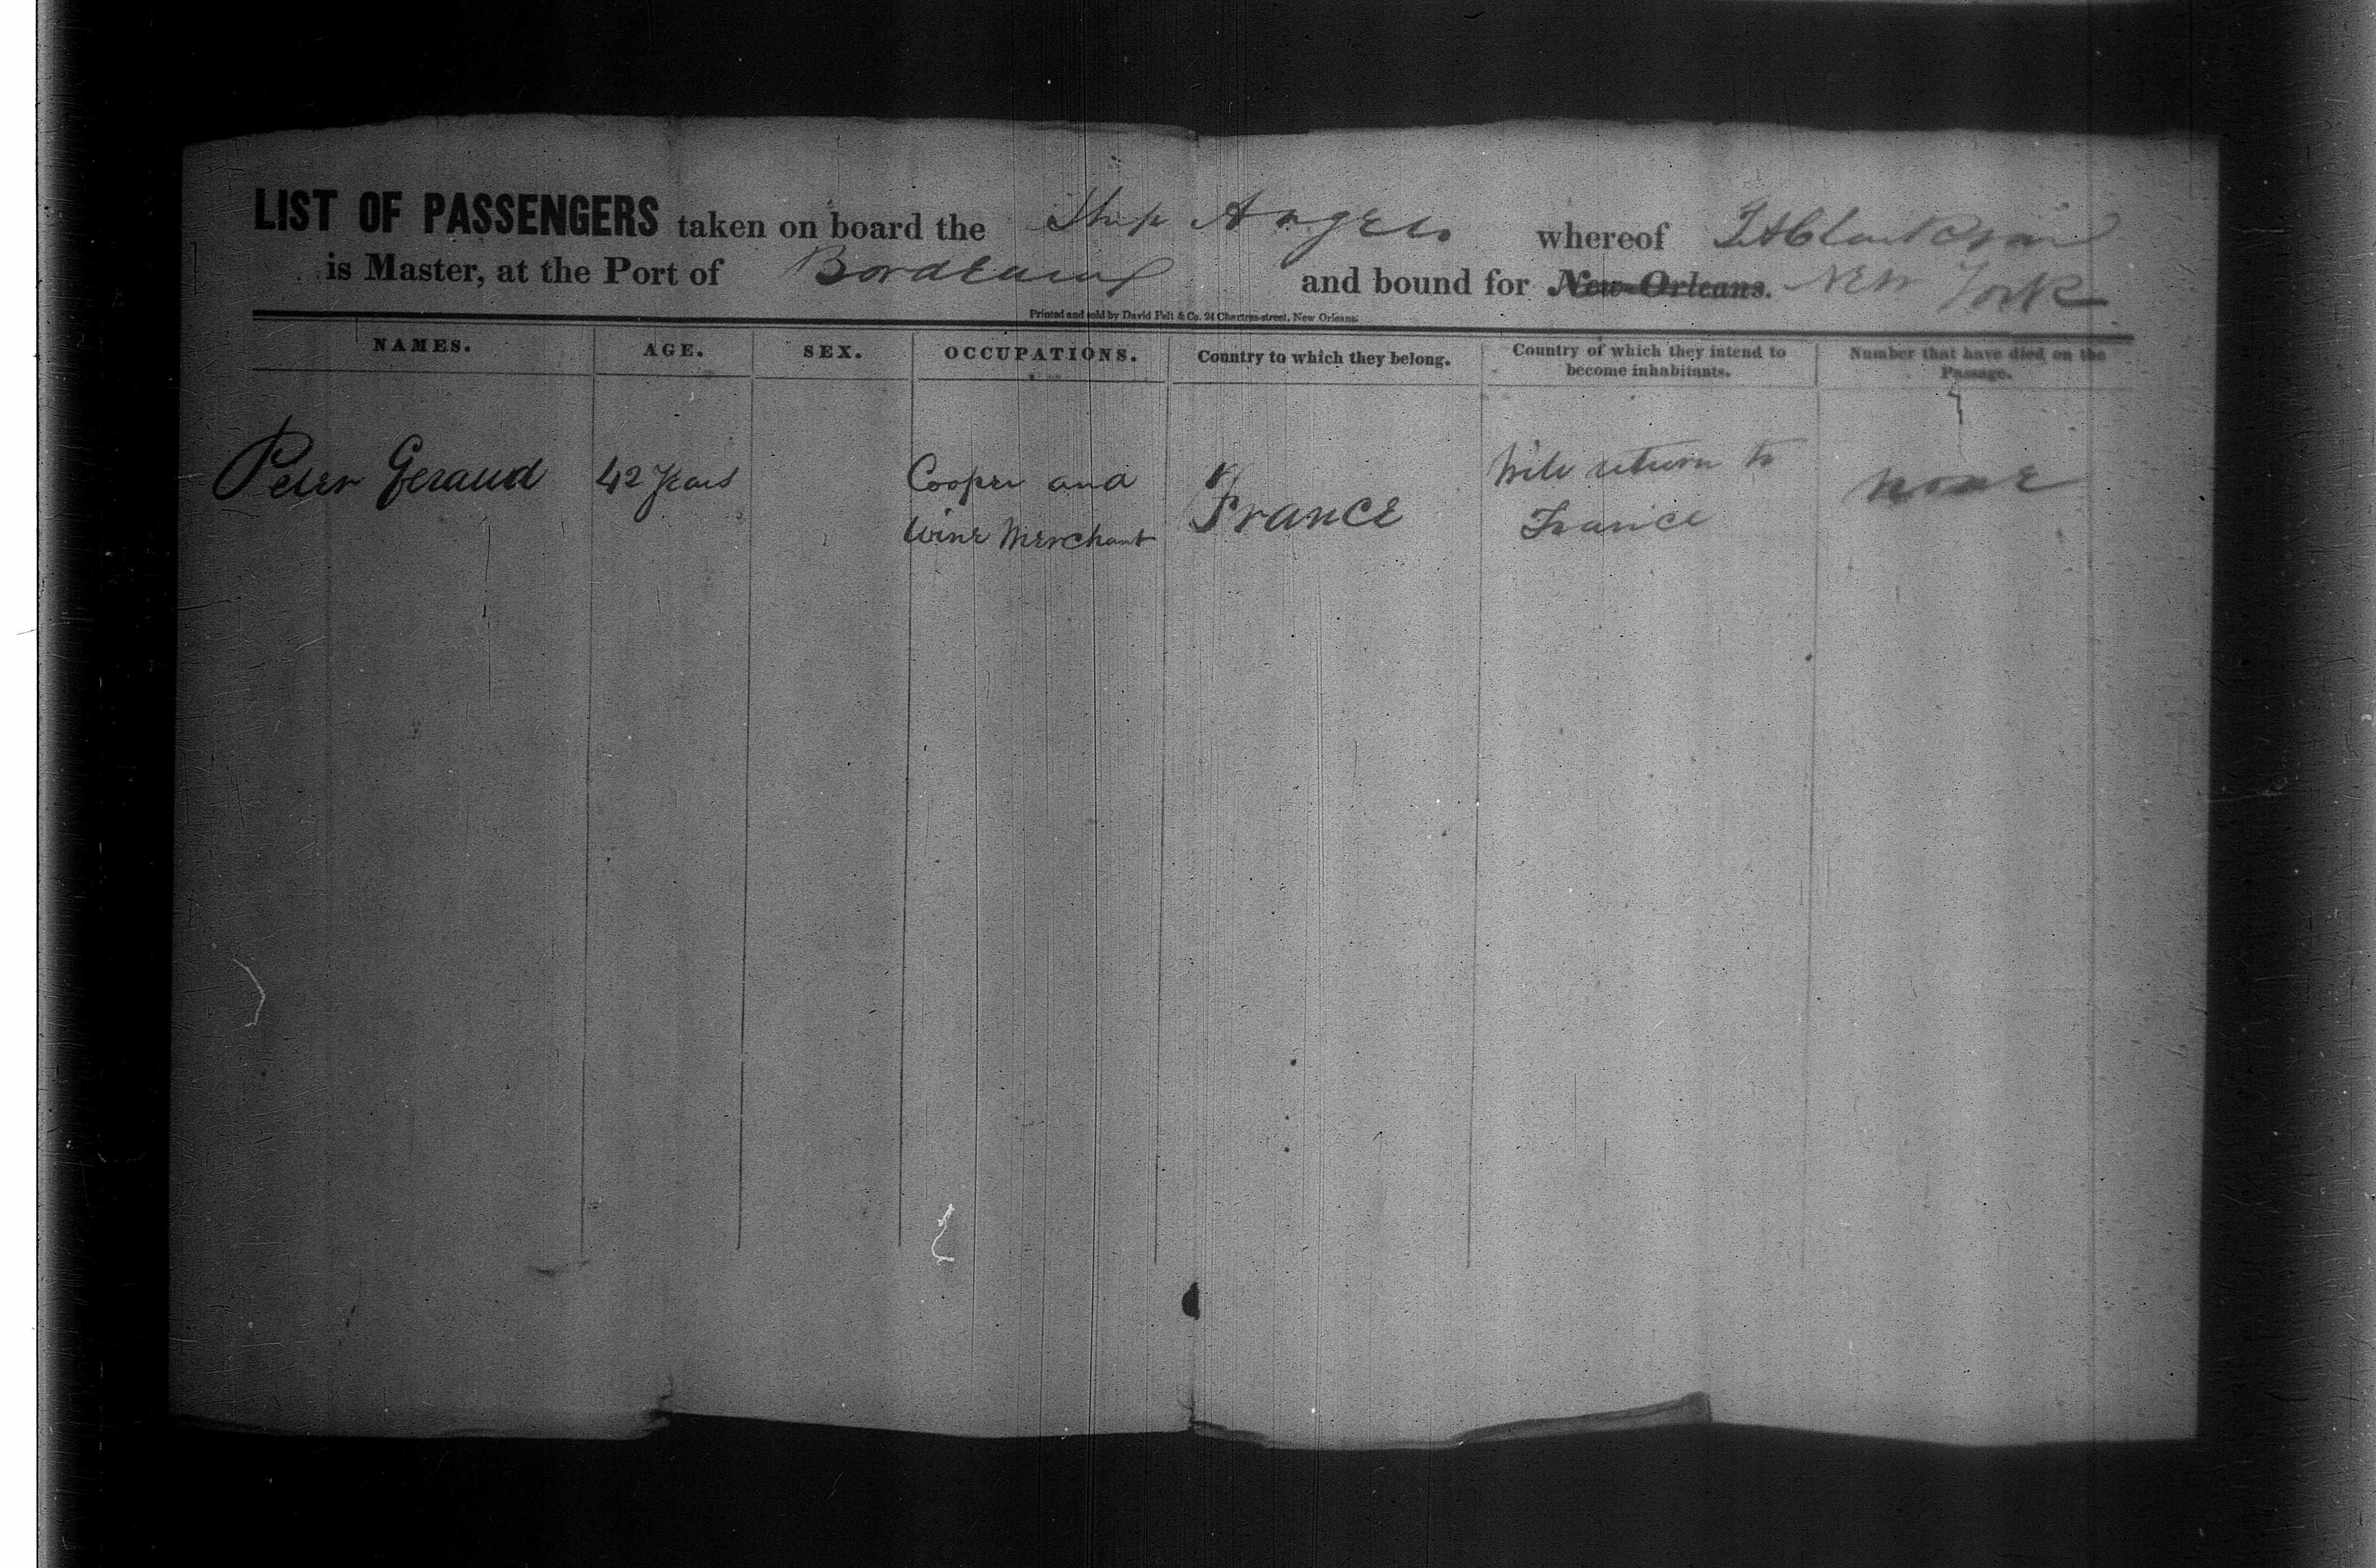 LIST OF PASSENGERS taken on board the Ship whereof
is Master, at the Port of Bordeaux and bound for New-Orleans. New York
Printed and sold by David Felt & Co. 24 Chartres-street, New Orleans.
NAMES. AGE. SEX. OCCUPATIONS. Country to which they belong. Country of which they intend to become inhabitants. Number that have died on the Passage.
Peter Geraud 42 Years Cooper and France Will return to none
Wine Merchant France